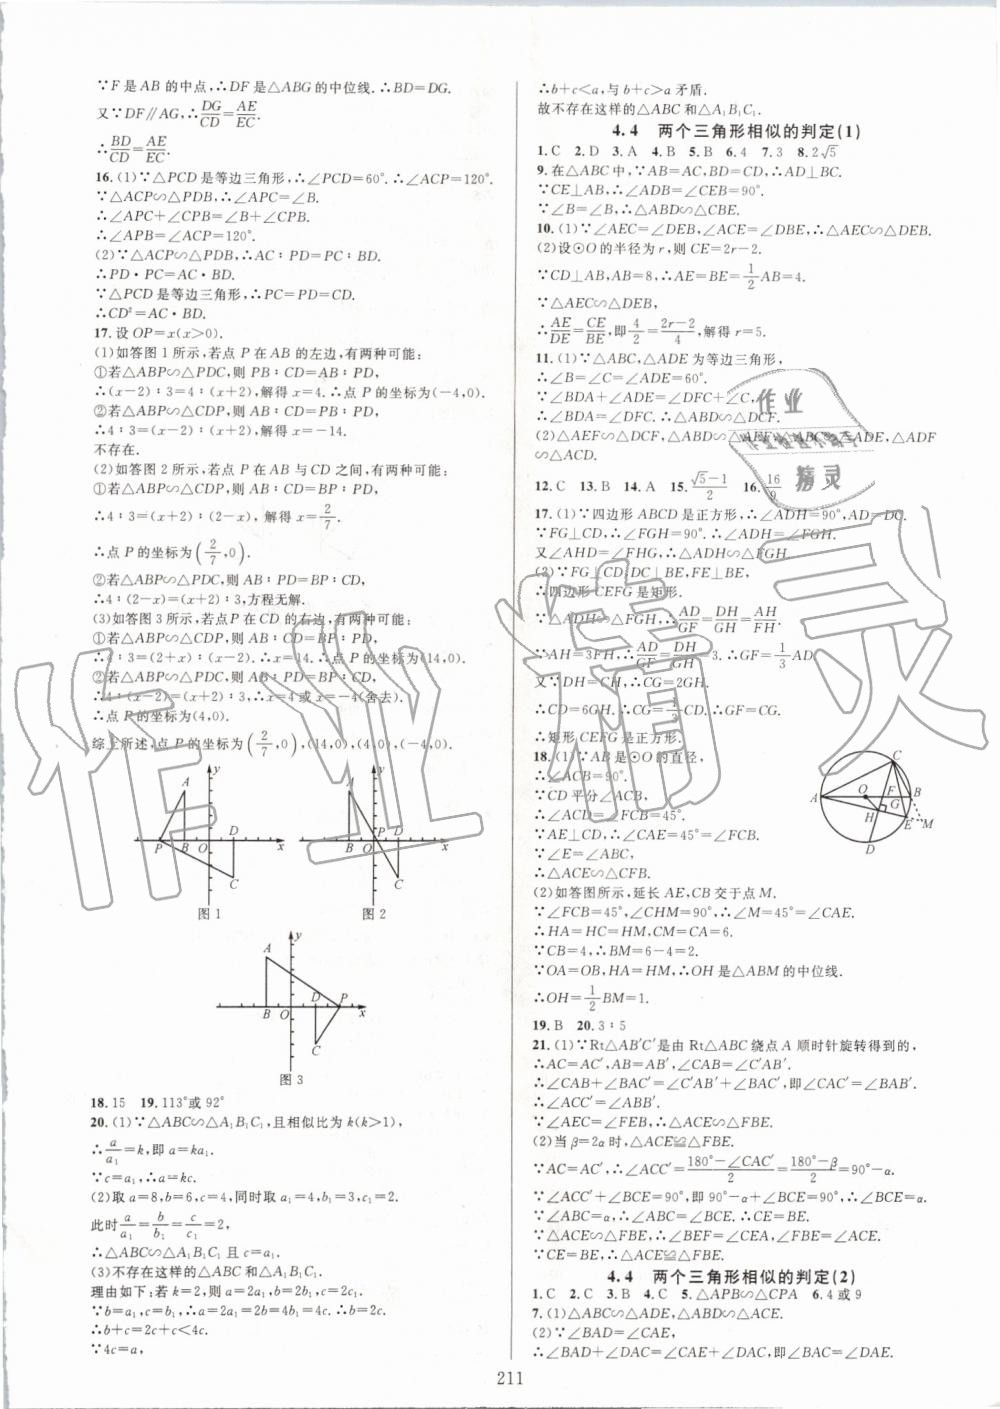 ∵F是AB的中点,∴DF是△ABG的中位线.∴BD=DG.
又∵DF∥AG,∴DG/CD=AE/EC.
∴BD/CD=AE/EC.
16.(1)∵△PCD是等边三角形,∴∠PCD=60°.∴∠ACP=120°.
∵△ACP∽△PDB,∴∠APC=∠B.
∴∠APC+∠CPB=∠B+∠CPB.
∴∠APB=∠ACP=120°.
(2)∵△ACP∽△PDB,∴AC∶PD=PC∶BD.
∴PD·PC=AC·BD.
∵△PCD是等边三角形,∴PC=PD=CD.
∴CD²=AC·BD.
17.设OP=x(x>0).
(1)如答图1所示,若点P在AB的左边,有两种可能:
①若△ABP∽△PDC,则PB∶CD=AB∶PD,
∴(x-2)∶3=4∶(x+2),解得x=4.∴点P的坐标为(-4,0).
②若△ABP∽△CDP,则AB∶CD=PB∶PD,
∴4∶3=(x-2)∶(x+2),解得x=-14.
不存在.
(2)如答图2所示,若点P在AB与CD之间,有两种可能:
①若△ABP∽△CDP,则AB∶CD=BP∶PD,
∴4∶3=(x+2)∶(2-x),解得x=2/7.
∴点P的坐标为(2/7,0).
②若△ABP∽△PDC,则AB∶PD=BP∶CD,
∴4∶(2-x)=(x+2)∶3,方程无解.
(3)如答图3所示,若点P在CD的右边,有两种可能:
①若△ABP∽△CDP,则AB∶CD=BP∶PD,
∴4∶3=(2+x)∶(x-2).∴x=14.∴点P的坐标为(14,0).
②若△ABP∽△PDC,则AB∶PD=BP∶CD,
∴4∶(x-2)=(x+2)∶3,∴x=4或x=-4(舍去).
∴点P的坐标为(4,0).
综上所述,点P的坐标为(2/7,0),(14,0),(4,0),(-4,0).
y
A
P B O D x
C
图1
y
A
P D
B O x
C
图2
y
A
D P
B O x
C
图3
18.15 19.113°或92°
20.(1)∵△ABC∽△A₁B₁C₁,且相似比为k(k>1),
∴a/a₁=k,即a=ka₁.
∵c=a₁,∴a=kc.
(2)取a=8,b=6,c=4,同时取a₁=4,b₁=3,c₁=2.
此时a/a₁=b/b₁=c/c₁=2,
∴△ABC∽△A₁B₁C₁且c=a₁.
(3)不存在这样的△ABC和△A₁B₁C₁.
理由如下:若k=2,则a=2a₁,b=2b₁,c=2c₁.
∵b=a₁,c=b₁,∴a=2a₁=2b=4b₁=4c.∴b=2c.
∴b+c=2c+c<4c.
∵4c=a,
∴b+c<a,与b+c>a矛盾.
故不存在这样的△ABC和△A₁B₁C₁.
4.4 两个三角形相似的判定(1)
1.C 2.D 3.A 4.B 5.B 6.4 7.3 8.2√5
9.在△ABC中,∵AB=AC,BD=CD,∴AD⊥BC.
∵CE⊥AB,∴∠ADB=∠CEB=90°.
∵∠B=∠B,∴△ABD∽△CBE.
10.(1)∵∠AEC=∠DEB,∠ACE=∠DBE,∴△AEC∽△DEB.
(2)设⊙O的半径为r,则CE=2r-2.
∵CD⊥AB,AB=8,∴AE=BE=1/2AB=4.
∵△AEC∽△DEB,
∴AE/DE=CE/BE,即4/2=2r-2/4,解得r=5.
11.(1)∵△ABC,△ADE为等边三角形,
∴∠B=∠C=∠ADE=60°.
∵∠BDA+∠ADE=∠DFC+∠C,
∴∠BDA=∠DFC.∴△ABD∽△DCF.
(2)△AEF∽△DCF,△ABD∽△AEF,△ABC∽△ADE,△ADF
∽△ACD.
12.C 13.B 14.A 15.√5-1/2 16.16/9
17.(1)∵四边形ABCD是正方形,∴∠ADH=90°,AD=DC.
∵FG⊥CD,∴∠FGH=90°.∴∠ADH=∠FGH.
又∠AHD=∠FHG,∴△ADH∽△FGH.
(2)∵FG⊥CD,DC⊥BE,FE⊥BE,
∴四边形CEFG是矩形.
∵△ADH∽△FGH,∴AD/GF=DH/GH=AH/FH.
∵AH=3FH,∴AD/GF=DH/GH=3.∴GF=1/3AD.
又∵DH=CH,∴CG=2GH.
∴CD=6GH.∴CG=1/3CD.∴GF=CG.
∴矩形CEFG是正方形.
18.(1)∵AB是⊙O的直径,
∴∠ACB=90°.
∵CD平分∠ACB,
∴∠FCB=45°.
∵AE⊥CD,∴∠CAE=45°=∠FCB.
∵∠E=∠ABC,
∴△ACE∽△CFB.
(2)如答图所示,延长AE,CB交于点M.
∵∠FCB=45°,∠CHM=90°,∴∠M=45°=∠CAE.
∴HA=HC=HM,CM=CA=6.
∵CB=4,∴BM=6-4=2.
∵OA=OB,HA=HM,∴OH是△ABM的中位线.
∴OH=1/2BM=1.
C
A O F B
H G
E M
D
19.B 20.3∶5
21.(1)∵Rt△AB′C′是由Rt△ABC绕点A顺时针旋转得到的,
∴AC=AC′,AB=AB′,∠CAB=∠C′AB′.
∴∠CAB+∠BAC′=∠C′AB′+∠BAC′,即∠CAC′=∠BAB′.
∴∠ACC′=∠ABB′.
∵∠AEC=∠FEB,∴△ACE∽△FBE.
(2)当β=2α时,△ACE≌△FBE.
∵AC=AC′,∴∠ACC′=180°-∠CAC′/2=180°-β/2=90°-α.
∵∠ACC′+∠BCE=90°,即90°-α+∠BCE=90°,∴∠BCE=α.
∵∠ABC=α,∴∠ABC=∠BCE.∴CE=BE.
∵△ACE∽△FBE,∴∠BEF=∠CEA,∠FBE=∠ACE.
∵CE=BE,∴△ACE≌△FBE.
4.4 两个三角形相似的判定(2)
1.C 2.C 3.B 4.C 5.△APB∽△CPA 6.4或9
7.(1)△ABC∽△ADE,△ABD∽△ACE.
(2)∵∠BAD=∠CAE,
∴∠BAD+∠DAC=∠CAE+∠DAC,即∠BAC=∠DAE.
211
作业
精灵
作业精灵